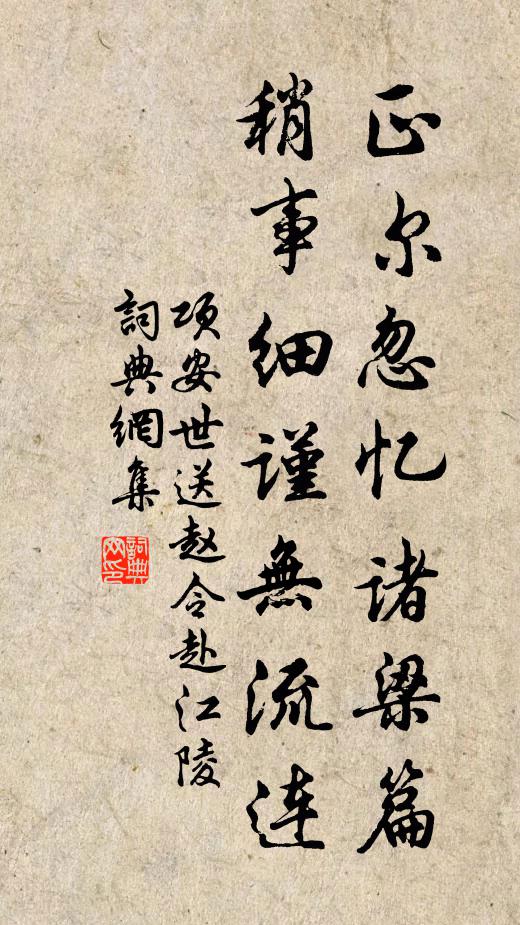 正尔忽忆诸梁篇
稍事细谨無流连
项安世送赵令赴江陵
詞典網集
詞典网印